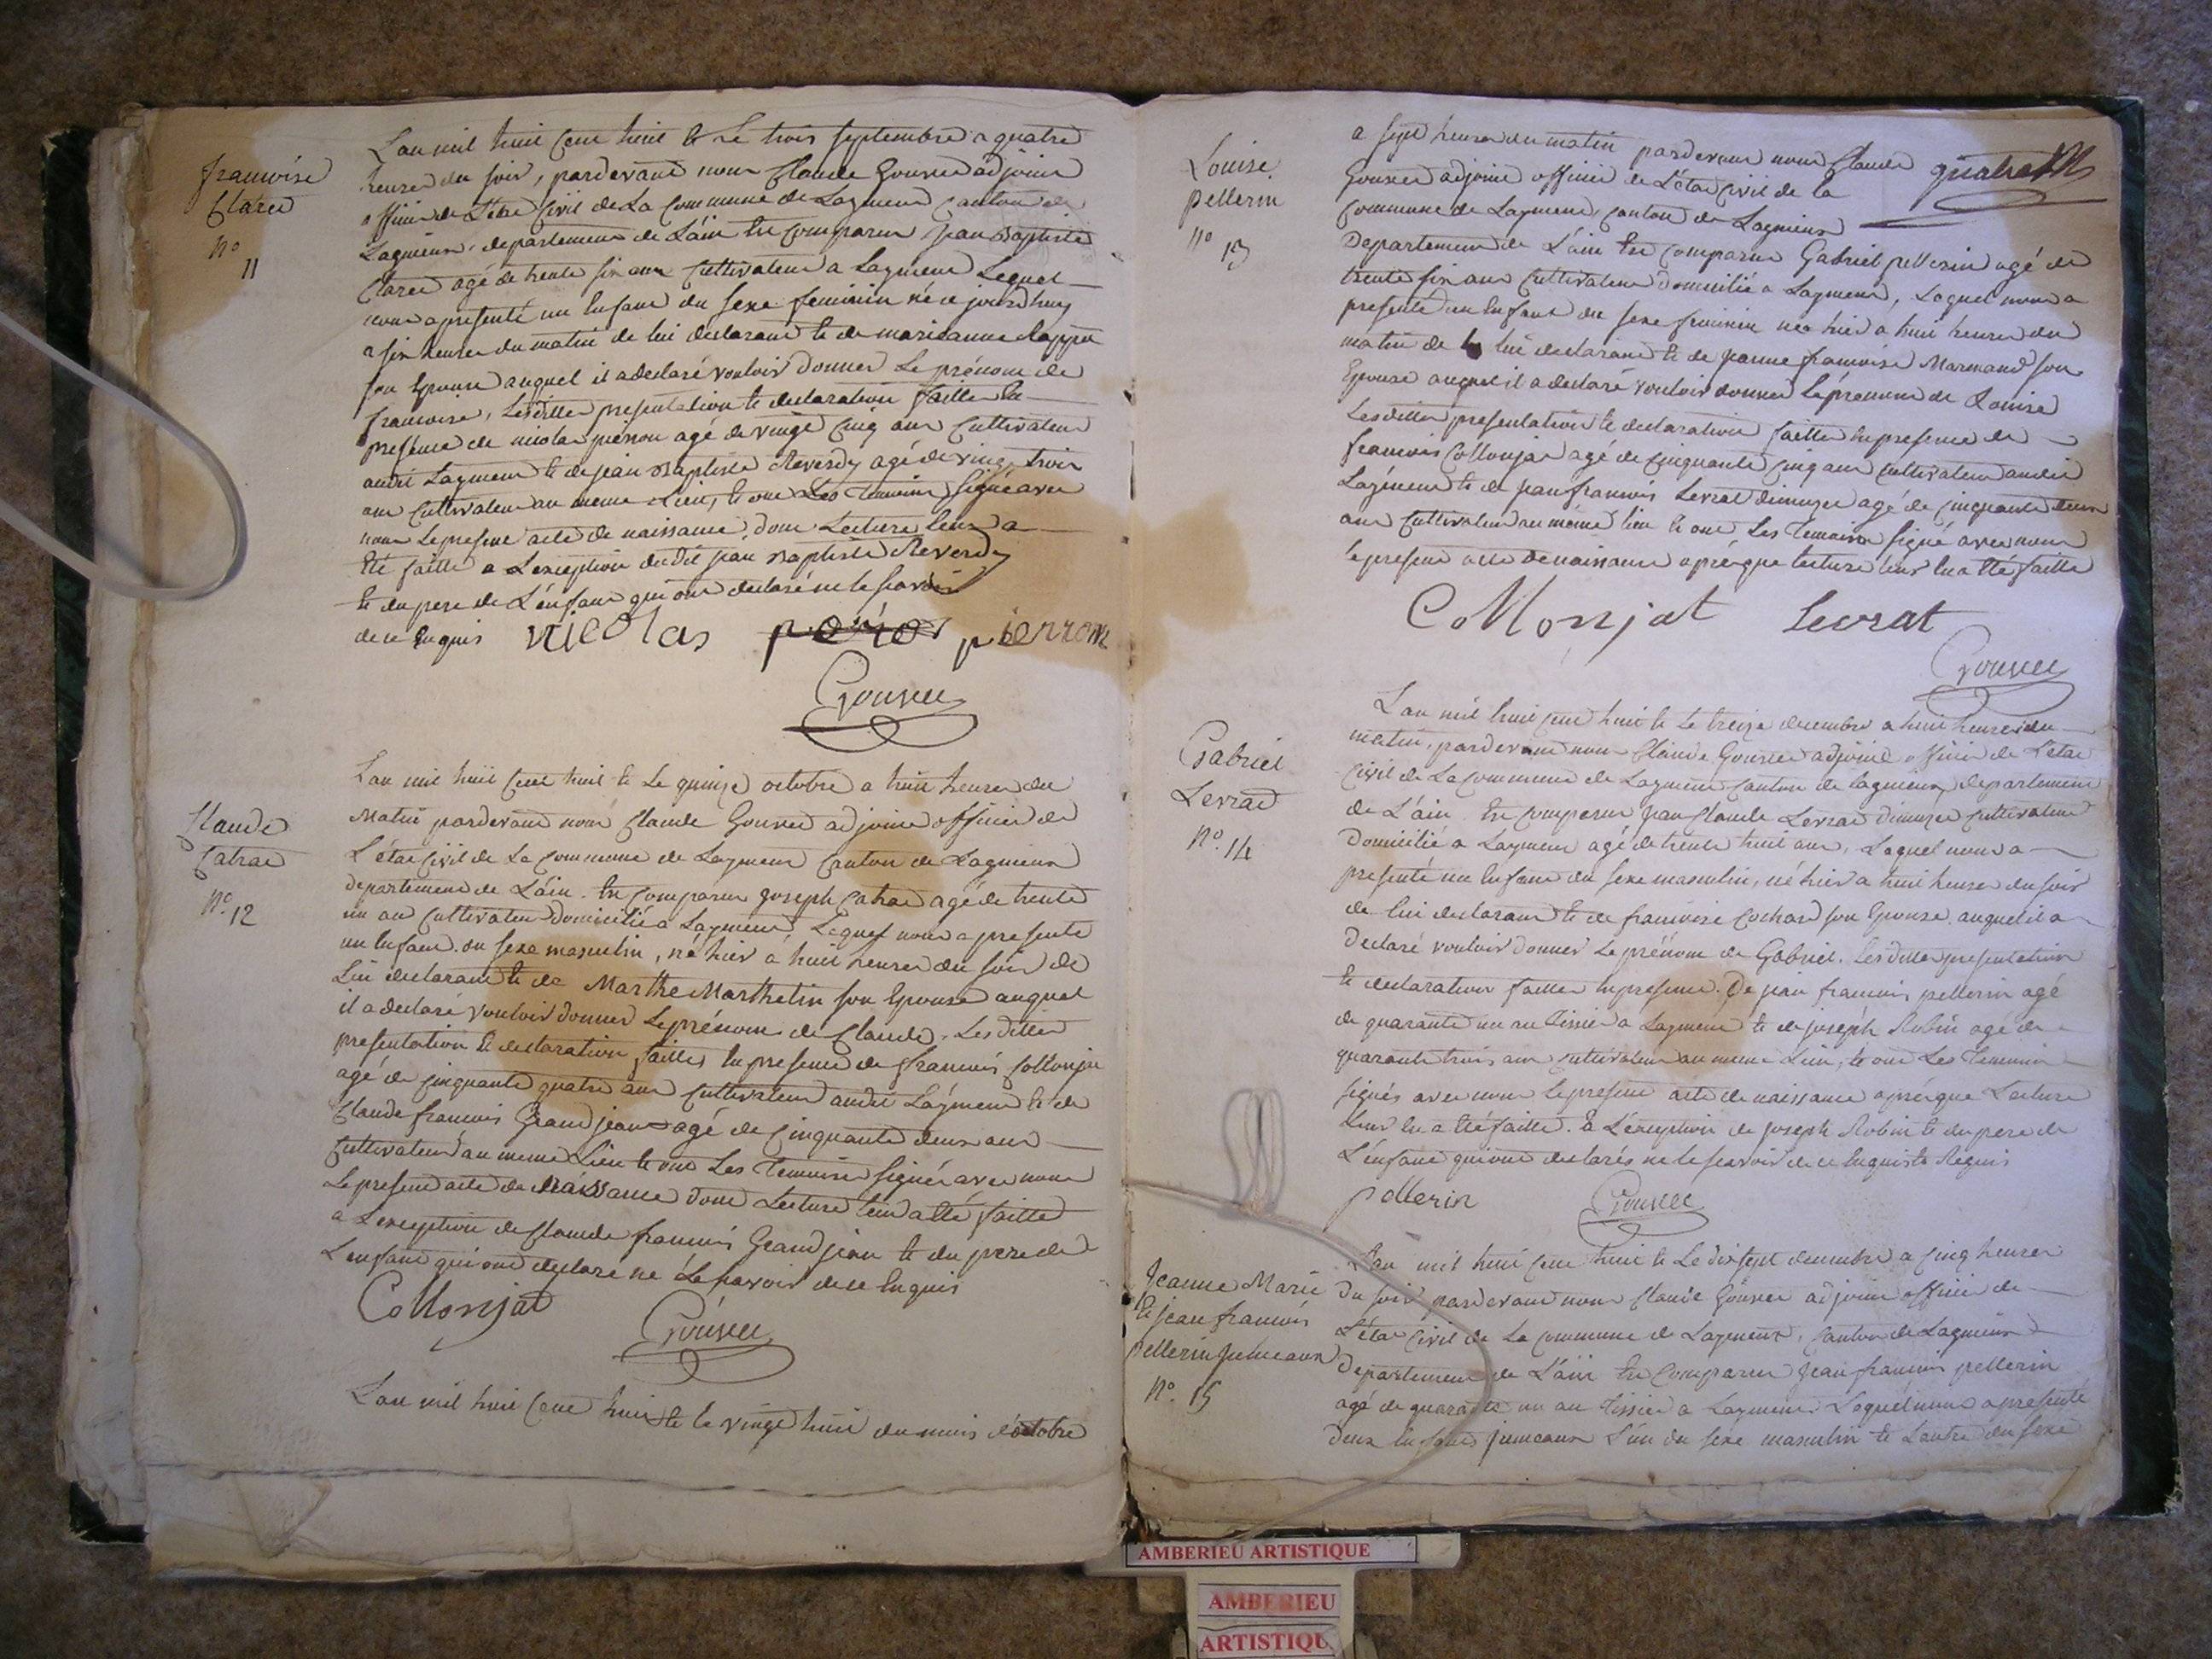 francoise
Claret
N°
11
L'an mil huit cent huit et le trois septembre a quatre
heures du soir, pardevant nous Claude Gouvet adjoint
officier de L'état Civil de La Commune de Laymeur Canton de
Lagnieux, departement de L'ain Est Comparu jean Baptiste
Claret agé de trente six ans Cultivateur a Laymeur Lequel
nous a presenté un Enfant du sexe feminin né ce jourd'huy
a six heures du matin de lui declarant et de marieanne
son Epouse auquel il a declaré vouloir donner Le prénom de
francoise, Lesdittes presentation et declaration faittes En
presence de nicolas pierron agé de vingt Cinq ans Cultivateur
audit Laymeur et de jean Baptiste Reverdy agé de vingt trois
ans Cultivateur au meme Lieu, et ont Les Temoins signé avec
nous Le present acte de naissance, dont Lecture leur a
Eté faitte a L'exception dudit jean Baptiste Reverdy
et du pere de L'enfant qui ont declaré ne le savoir
de ce Enquis nicolas pierron
Gouvet
Claude
Catrat
N°. 12
L'an mil huit Cent huit et Le quinze octobre a huit heures du
Matin pardevant nous Claude Gouvet adjoint officier de
L'état Civil de La Commune de Laymeur Canton de Lagnieux
departement de L'ain. Est Comparu joseph Catrat agé de trente
un an Cultivateur domicilié a Laymeur, Lequel nous a presenté
un Enfant du sexe masculin, né hier à huit heures du soir de
Lui declarant et de Marthe Marthelin son Epouse auquel
il a declaré vouloir donner Le prénom de Claude. Les dittes
presentation et declaration faittes En presence de francois Collonjat
agé de Cinquante quatre ans Cultivateur audit Laymeur et de
Claude francois Grandjean agé de Cinquante deux ans
Cultivateur au meme Lieu et ont Les Temoins signés avec nous
Le present acte de Naissance dont Lecture leur a Eté faitte
a L'exception de Claude francois Grandjean et du pere de
L'enfant qui ont declaré ne Le savoir de ce Enquis
Collonjat
Gouvet
L'an mil huit Cent huit et le vingt huit du mois d'octobre
Louise
pellerin
N° 13
a sept heures du matin pardevant nous Claude
Gouvet adjoint officier de L'état Civil de la
Commune de Laymeur, Canton de Lagnieux
Departement de L'ain Est Comparu Gabriel pellerin agé de
trente six ans Cultivateur domicilié a Laymeur, Lequel nous a
presenté un Enfant du sexe feminin née hier a huit heures du
matin de lui declarant et de jeanne francoise Marmand son
Epouse auquel il a declaré vouloir donner Le prenom de Louise
Lesdittes presentation et declaration faittes En presence de
francois Collonjat agé de Cinquante Cinq ans Cultivateur audit
Laymeur et de jean francois Levrat dimuzet agé de Cinquante deux
ans Cultivateur au même lieu et ont Les Temoins signé avec nous
le present acte de naissance après que lecture leur En a Eté faitte
Collonjat Levrat
Gouvet
Gabriel
Levrat
N°. 14
L'an mil huit cent huit et le treize decembre a huit heures du
matin, pardevant nous Claude Gouvet adjoint officier de L'état
Civil de La Commune de Laymeur Canton de Lagnieux, departement
de L'ain Est Comparu jean Claude Levrat dimuzet Cultivateur
Domicilié a Laymeur agé de trente huit ans, Lequel nous a
presenté un Enfant du sexe masculin, né hier a huit heures du soir
de lui declarant et de francoise Cochard son Epouse auquel il a
Declaré vouloir donner Le prénom de Gabriel. Lesdittes presentation
et declaration faittes En presence. De jean francois pellerin agé
de quarante un an Tissier a Laymeur et de joseph Robin agé de
quarante trois ans Cultivateur au meme Lieu, et ont Les Temoins
signés avec nous Le present acte de naissance après que Lecture
leur En a Eté faitte. a L'exception de joseph Robin et du pere de
L'enfant qui ont declarés ne le scavoir de ce Enquis et Requis
pellerin Gouvet
Jeanne Marie
et jean francois
pellerin jumeaux
N°. 15
L'an mil huit cent huit et Le dix sept decembre a Cinq heures
du soir pardevant nous Claude Gouvet adjoint officier de
L'état Civil de La Commune de Laymeur, Canton de Lagnieux
Departement de L'ain Est Comparu jean francois pellerin
agé de quarante un an Tissier a Laymeur Lequel nous a presenté
deux Enfants jumeaux L'un du sexe masculin et L'autre du sexe
AMBERIEU ARTISTIQUE
AMBERIEU
ARTISTIQU